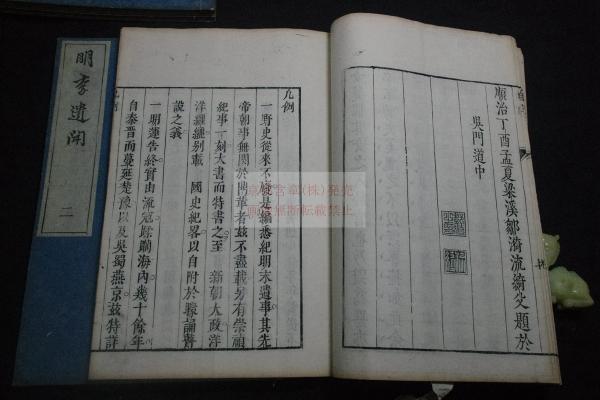 順治丁酉孟夏梁溪鄒漪流綺父題於
吳門道中
凡例
一野史從來不廢是編悉紀明末遺事其先
帝朝事無關於者茲不盡載另有崇禎
紀事一刻大書而特書之至 新朝大政洋
洋纚纚別載 國史紀畧以自附於
設之義
一明運告終實由流寇蹂躪海内幾十餘年
自秦晋而蔓延楚豫以及吳蜀燕京茲特詳
明季遺聞
二